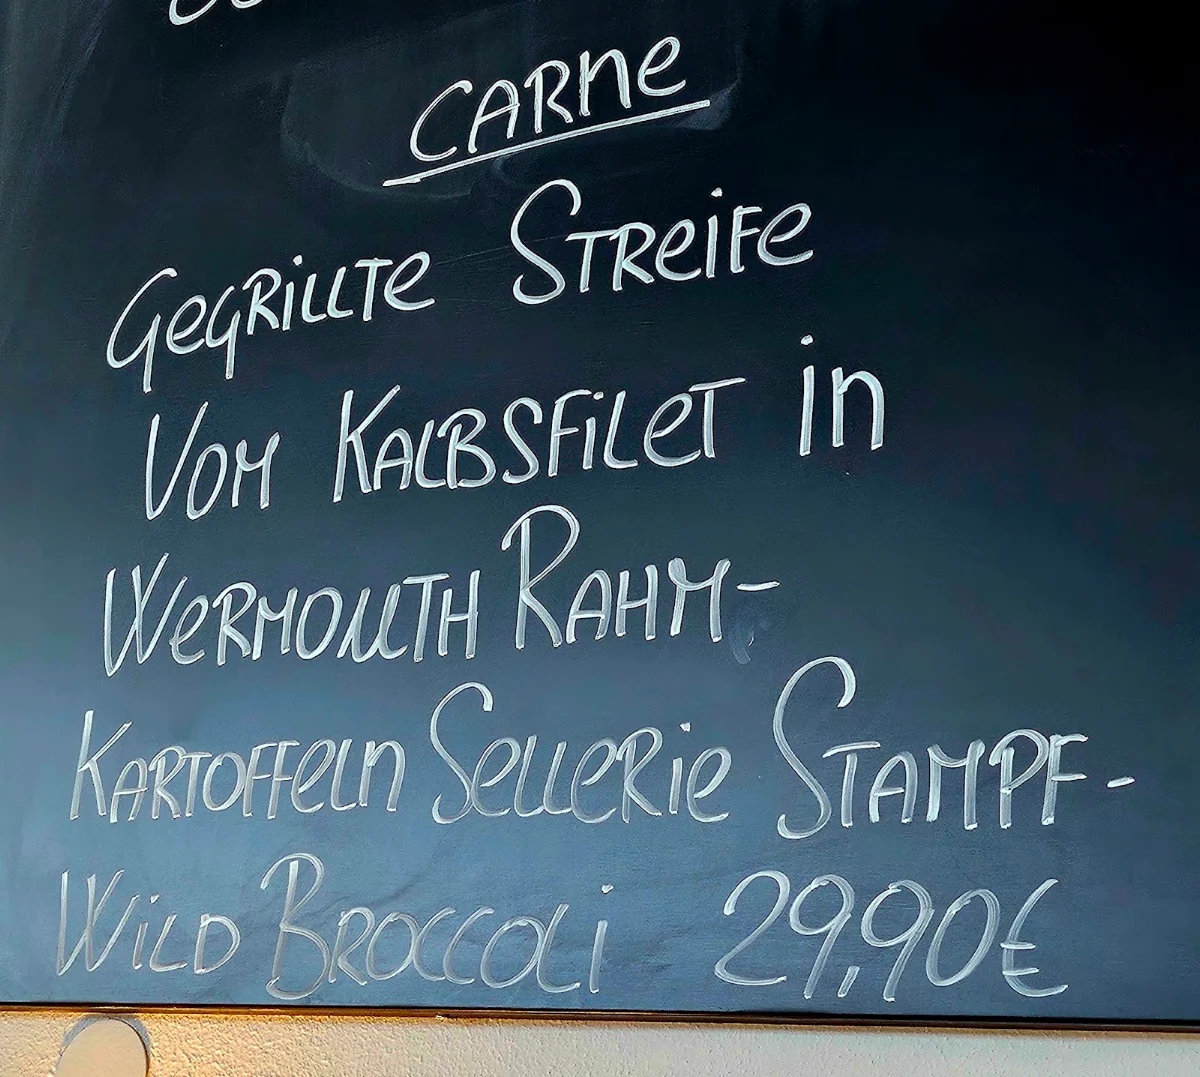 CARne
GegRiLLTe STReiFe
VOM KALBSFiLeT in
WeRMOUTH RAHM-
KARTOFFeLn SeLLeRie STAMPF-
WiLD BROCCOLi 29,90€